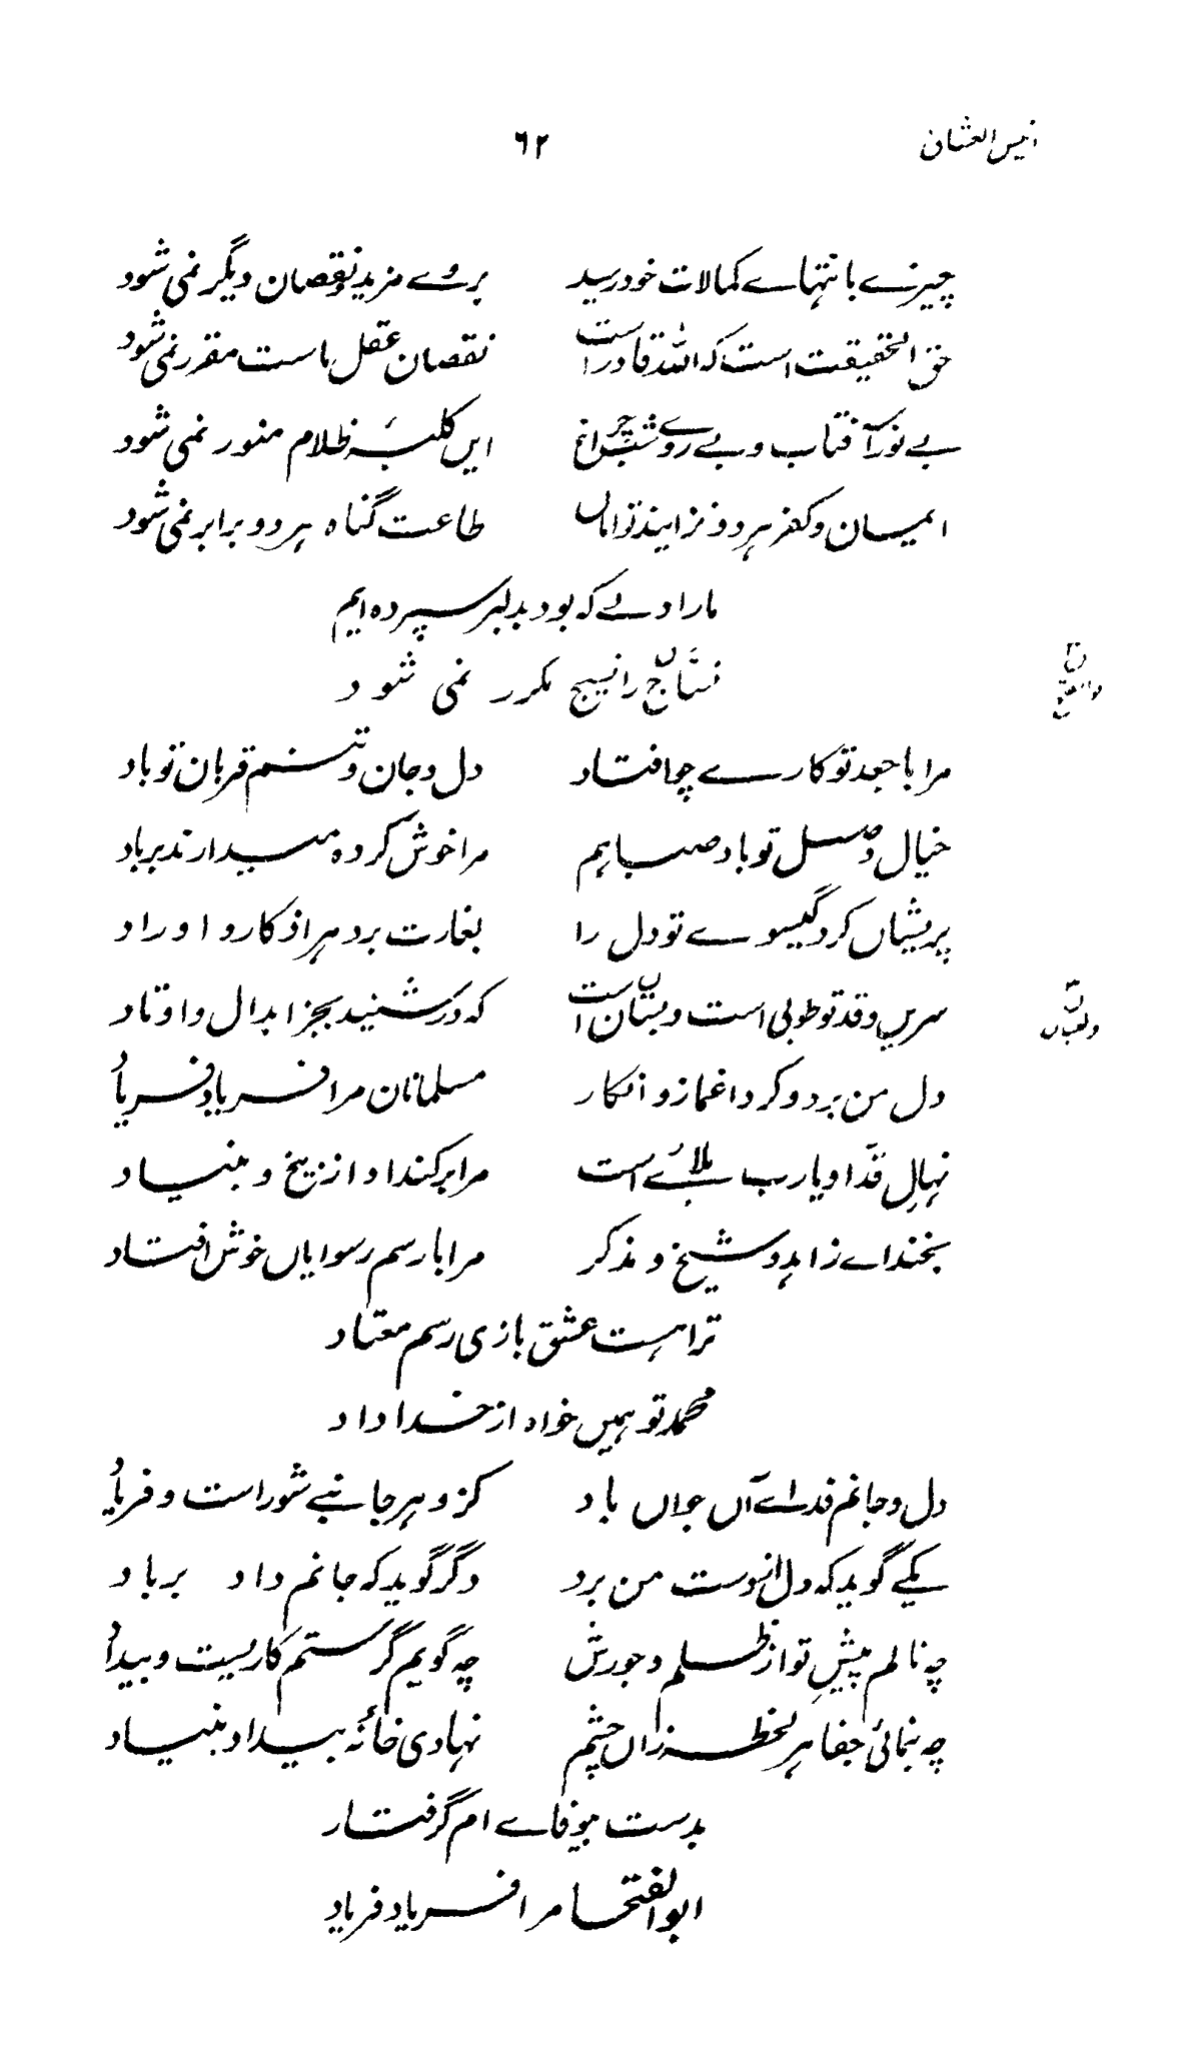 انیس العشاق ۶۲
چیزے با نتہاے کمالات خود رسید بروے مزید و نقصان دیگر نمی شود
حق الحقیقت است کہ اللہ قادر است نقصان عقل ماست مقرر نمی شود
بے نور آفتاب و بے روے شب چراغ ایں کلبۂ ظلام منور نمی شود
ایمان و کفر ہر دو نزایند تواماں طاعت گناہ ہر دو برابر نمی شود
مارا دلے کہ بود بدلبر سپردہ ایم
نساج را نسیج مکرر نمی شود
مرا با جعد تو کارے چو افتاد دل و جان و تنم قربان تو باد
خیال وصل تو باد صبا ہم مرا خوش کردہ میدارند بر باد
پریشاں کرد گیسوے تو دل را بغارت برد ہر اذکار و اوراد
سریں و قد تو طوبی است و بستاں است کہ در شنید بجز ابدال و اوتاد
دل من برد و کرد اغماز و انکار مسلمانان مرا فریاد فریاد
نہالِ قدّ او یارب بلائے است مرا برکند او از بیخ و بنیاد
بخند اے زاہد و شیخ و مذکر مرا با رسم رسوایاں خوش افتاد
ترا ہست عشق بازی رسم معتاد
محمد تو ہمیں خواہ از خدا داد
دل و جانم فداے آں جواں باد کز و ہر جانبے شور است و فریاد
یکے گوید کہ دل از دست من برد دگر گوید کہ جانم داد برباد
چہ نالم پیشِ تو از ظلم و جورش چہ گویم گر ستم کاریست و بیداد
چہ بنمائی جفا ہر لحظہ زاں چشم نہادی خانۂ بیداد بنیاد
بدست بیوفاے ام گرفتار
ابوالفتحا مرا فریاد فریاد